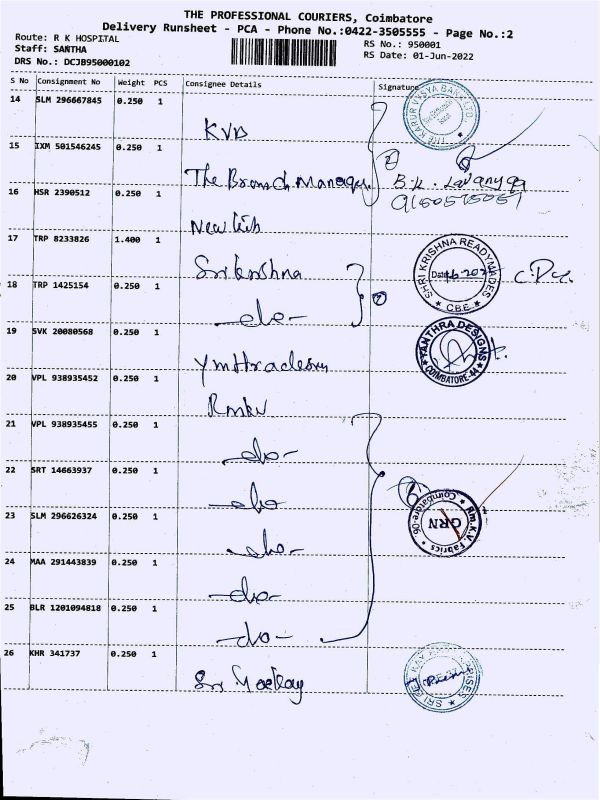 THE PROFESSIONAL COURIERS, Coimbatore
Delivery Runsheet - PCA - Phone No.:0422-3505555 - Page No.:2
Route: R K HOSPITAL
RS No.: 950001
Staff: SANTHA
RS Date: 01-Jun-2022
DRS No.: DCJB95000102
S No Consignment No Weight PCS Consignee Details Signature
14 SLM 296667845 0.250 1 KVB
THE KARUR VYSYA BANK LTD.
15 IXM 501546245 0.250 1 The Branch Manager
16 HSR 2390512 0.250 1
17 TRP 8233826 1.400 1 Sri krishna
SHRI KRISHNA READYMADES
CBE
18 TRP 1425154 0.250 1 -do-
19 SVK 20080568 0.250 1
YANTHRA DESIGNS
COIMBATORE-44
20 VPL 938935452 0.250 1 Rmkv
21 VPL 938935455 0.250 1 -do-
22 SRT 14663937 0.250 1 -do-
23 SLM 296626324 0.250 1 -do-
Rm.K.V Fabrics
Coimbatore-06.
GRN
24 MAA 291443839 0.250 1 -do-
25 BLR 1201094818 0.250 1 -do-
26 KHR 341737 0.250 1